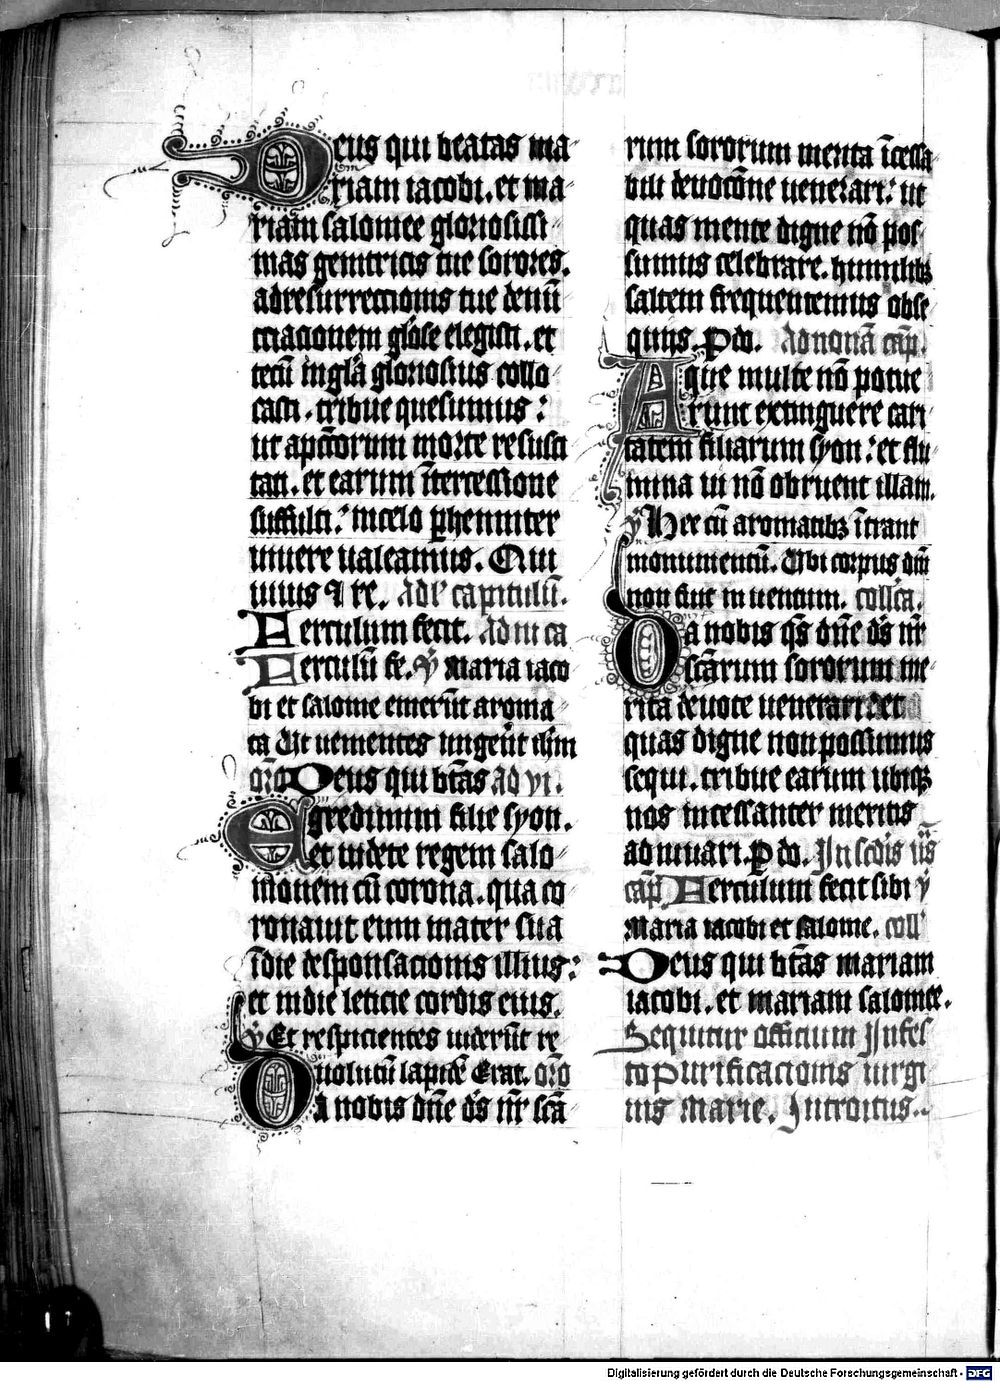 Deus qui beatas ma
riam iacobi. et ma
riam salomee gloriosissi
mas genitricis tue sorores.
ad resurrectionis tue denu̅
ctiacionem glo̅se elegisti. et
tecu̅ in gl̅a gloriosius collo
casti. tribue quesumus:
ut ap̅ctorum morte resusci
tari. et earum i̅tercessione
suffulti: in celo ꝑhenniter
uiuere ualeamus. Qui
uiuis ⁊ re. Ad capitulu̅.
Herculum fecit. Ad iii ca
Ferculu̅ fe. ℣ Maria iaco
bi et salome emeru̅t aroma
ta Ut uenientes unger̅ut ih̅m
or̅o Deus qui b̅tas ad vi.
Egredimini filie syon.
et uidete regem salo
monem cu̅ corona. qua co
ronauit eum mater sua
i̅ die desponsacionis illius:
et in die leticie cordis eius.
℣ Et respicientes uideru̅t re
uolutu̅ lapide̅ Erat. or̅o
Da nobis dn̅e d̅s nr̅ sc̅a
rum sororum merita i̅cessa
bili deuoc̅one uenerari: ut
quas mente digne no̅ pos
sumus celebrare. humilibꝫ
saltem frequentemus obse
quijs. P do. Ad nona̅ cap̅.
Aque multe no̅ potue
runt extinguere cari
tatem filiarum syon: et flu
mina no̅ obruent illam.
℣ Hee cu̅ aromatibꝫ i̅trant
monumentu̅. Ubi corpus dn̅i
non fuit inuentum. coll̅ca.
Da nobis q̅s dn̅e d̅s nr̅
sc̅arum sororum me
rita deuote uenerari: et
quas digne non possumus
sequi. tribue earum ubiqꝫ
nos incessanter meritis
adiuuari. P do. In sc̅dis
cap̅ Ferculum fecit sibi ℣
Maria iacobi et salome. coll
Deus qui b̅tas mariam
iacobi. et mariam salomee.
Sequitur officium In fes
to Purificacionis uirgi
nis Marie. Introitus.
Digitalisierung gefördert durch die Deutsche Forschungsgemeinschaft - DFG